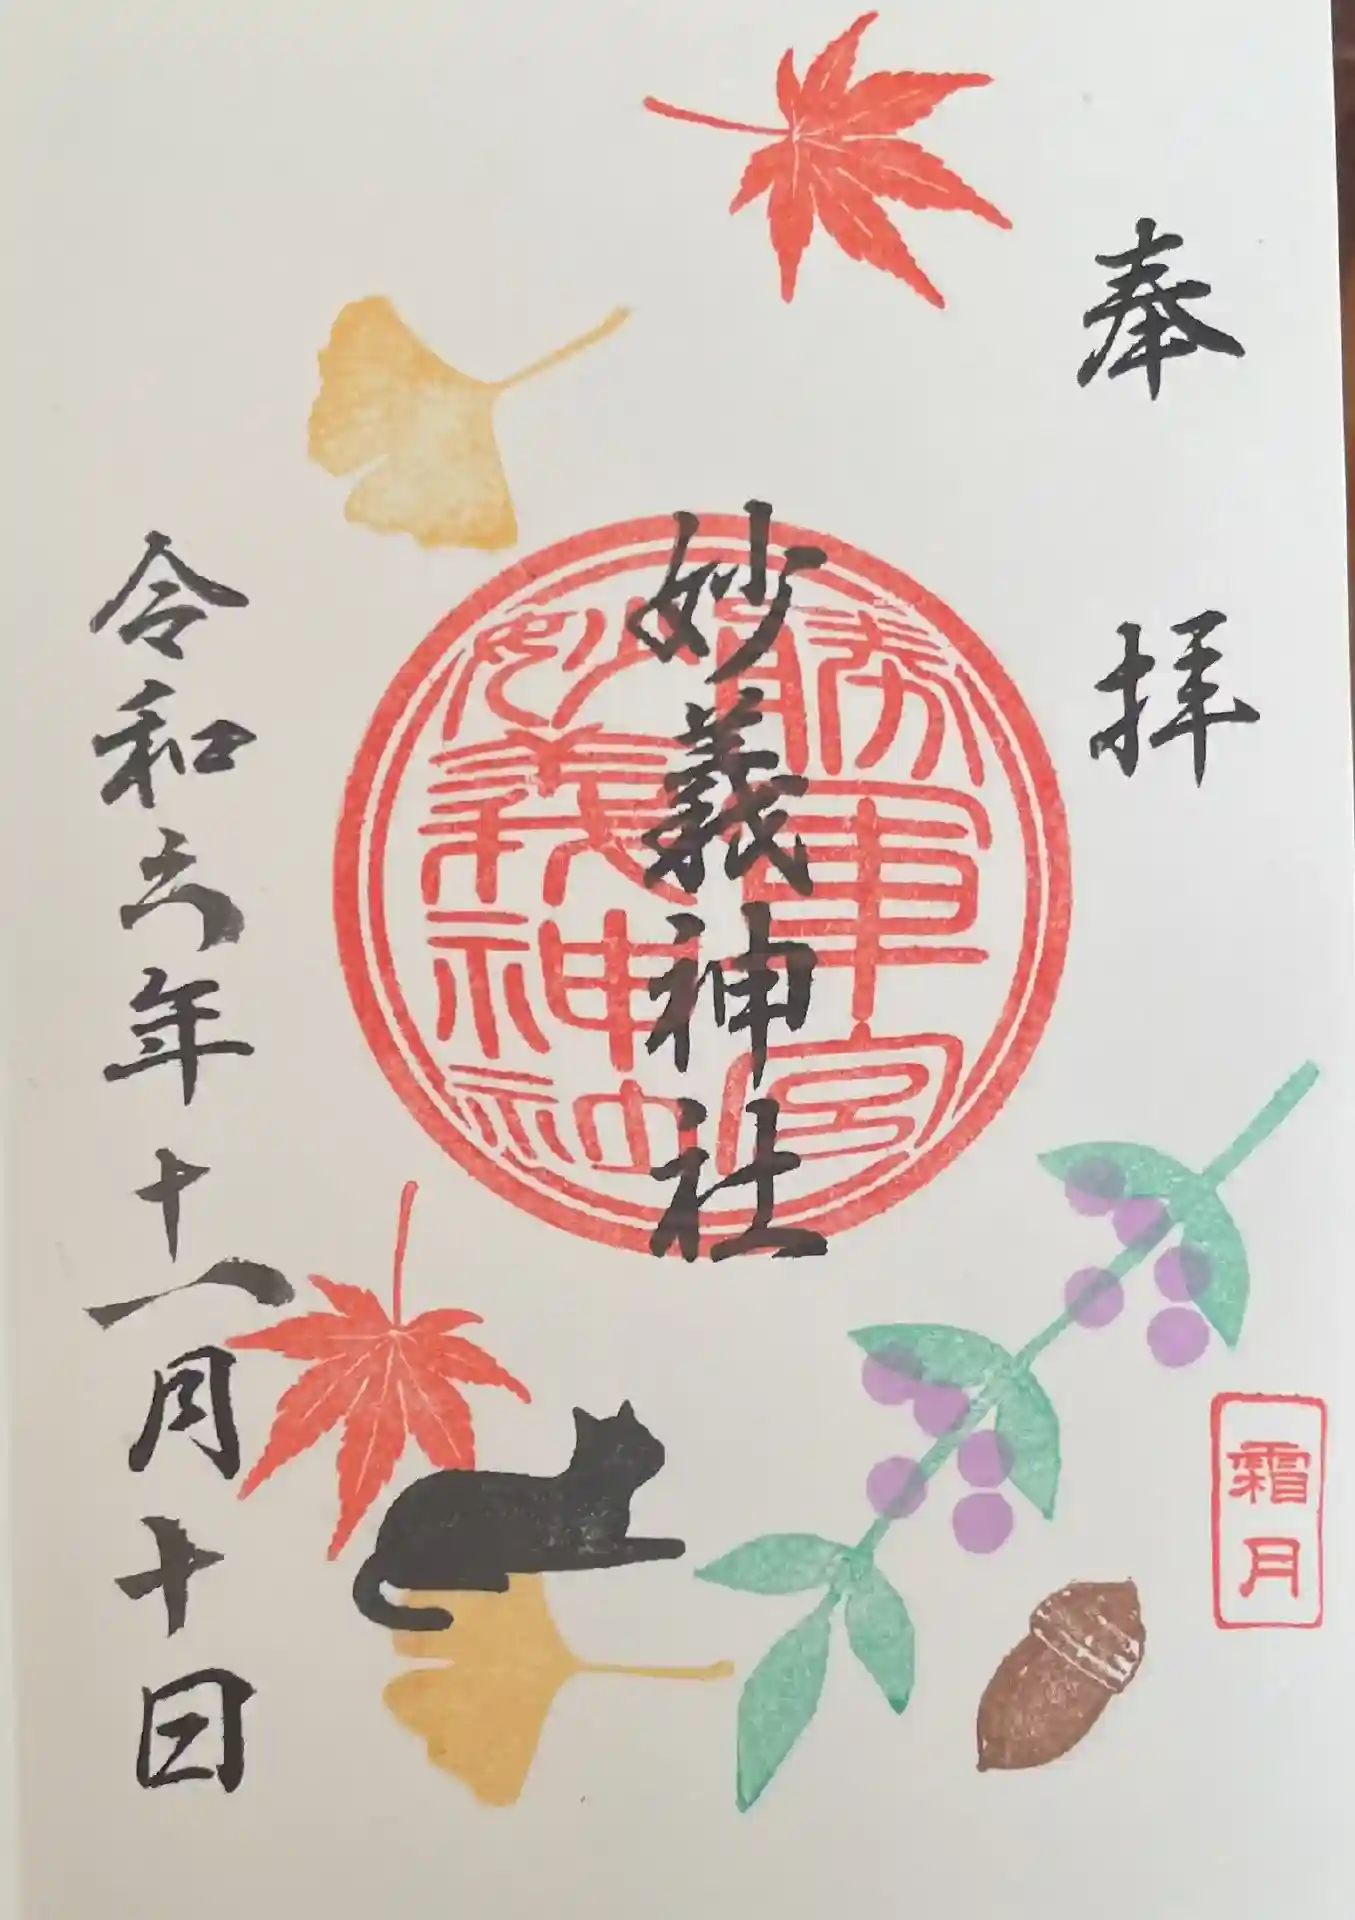 奉拝
霜月
勝軍宮
妙義神社
妙義神社
令和六年十一月十日